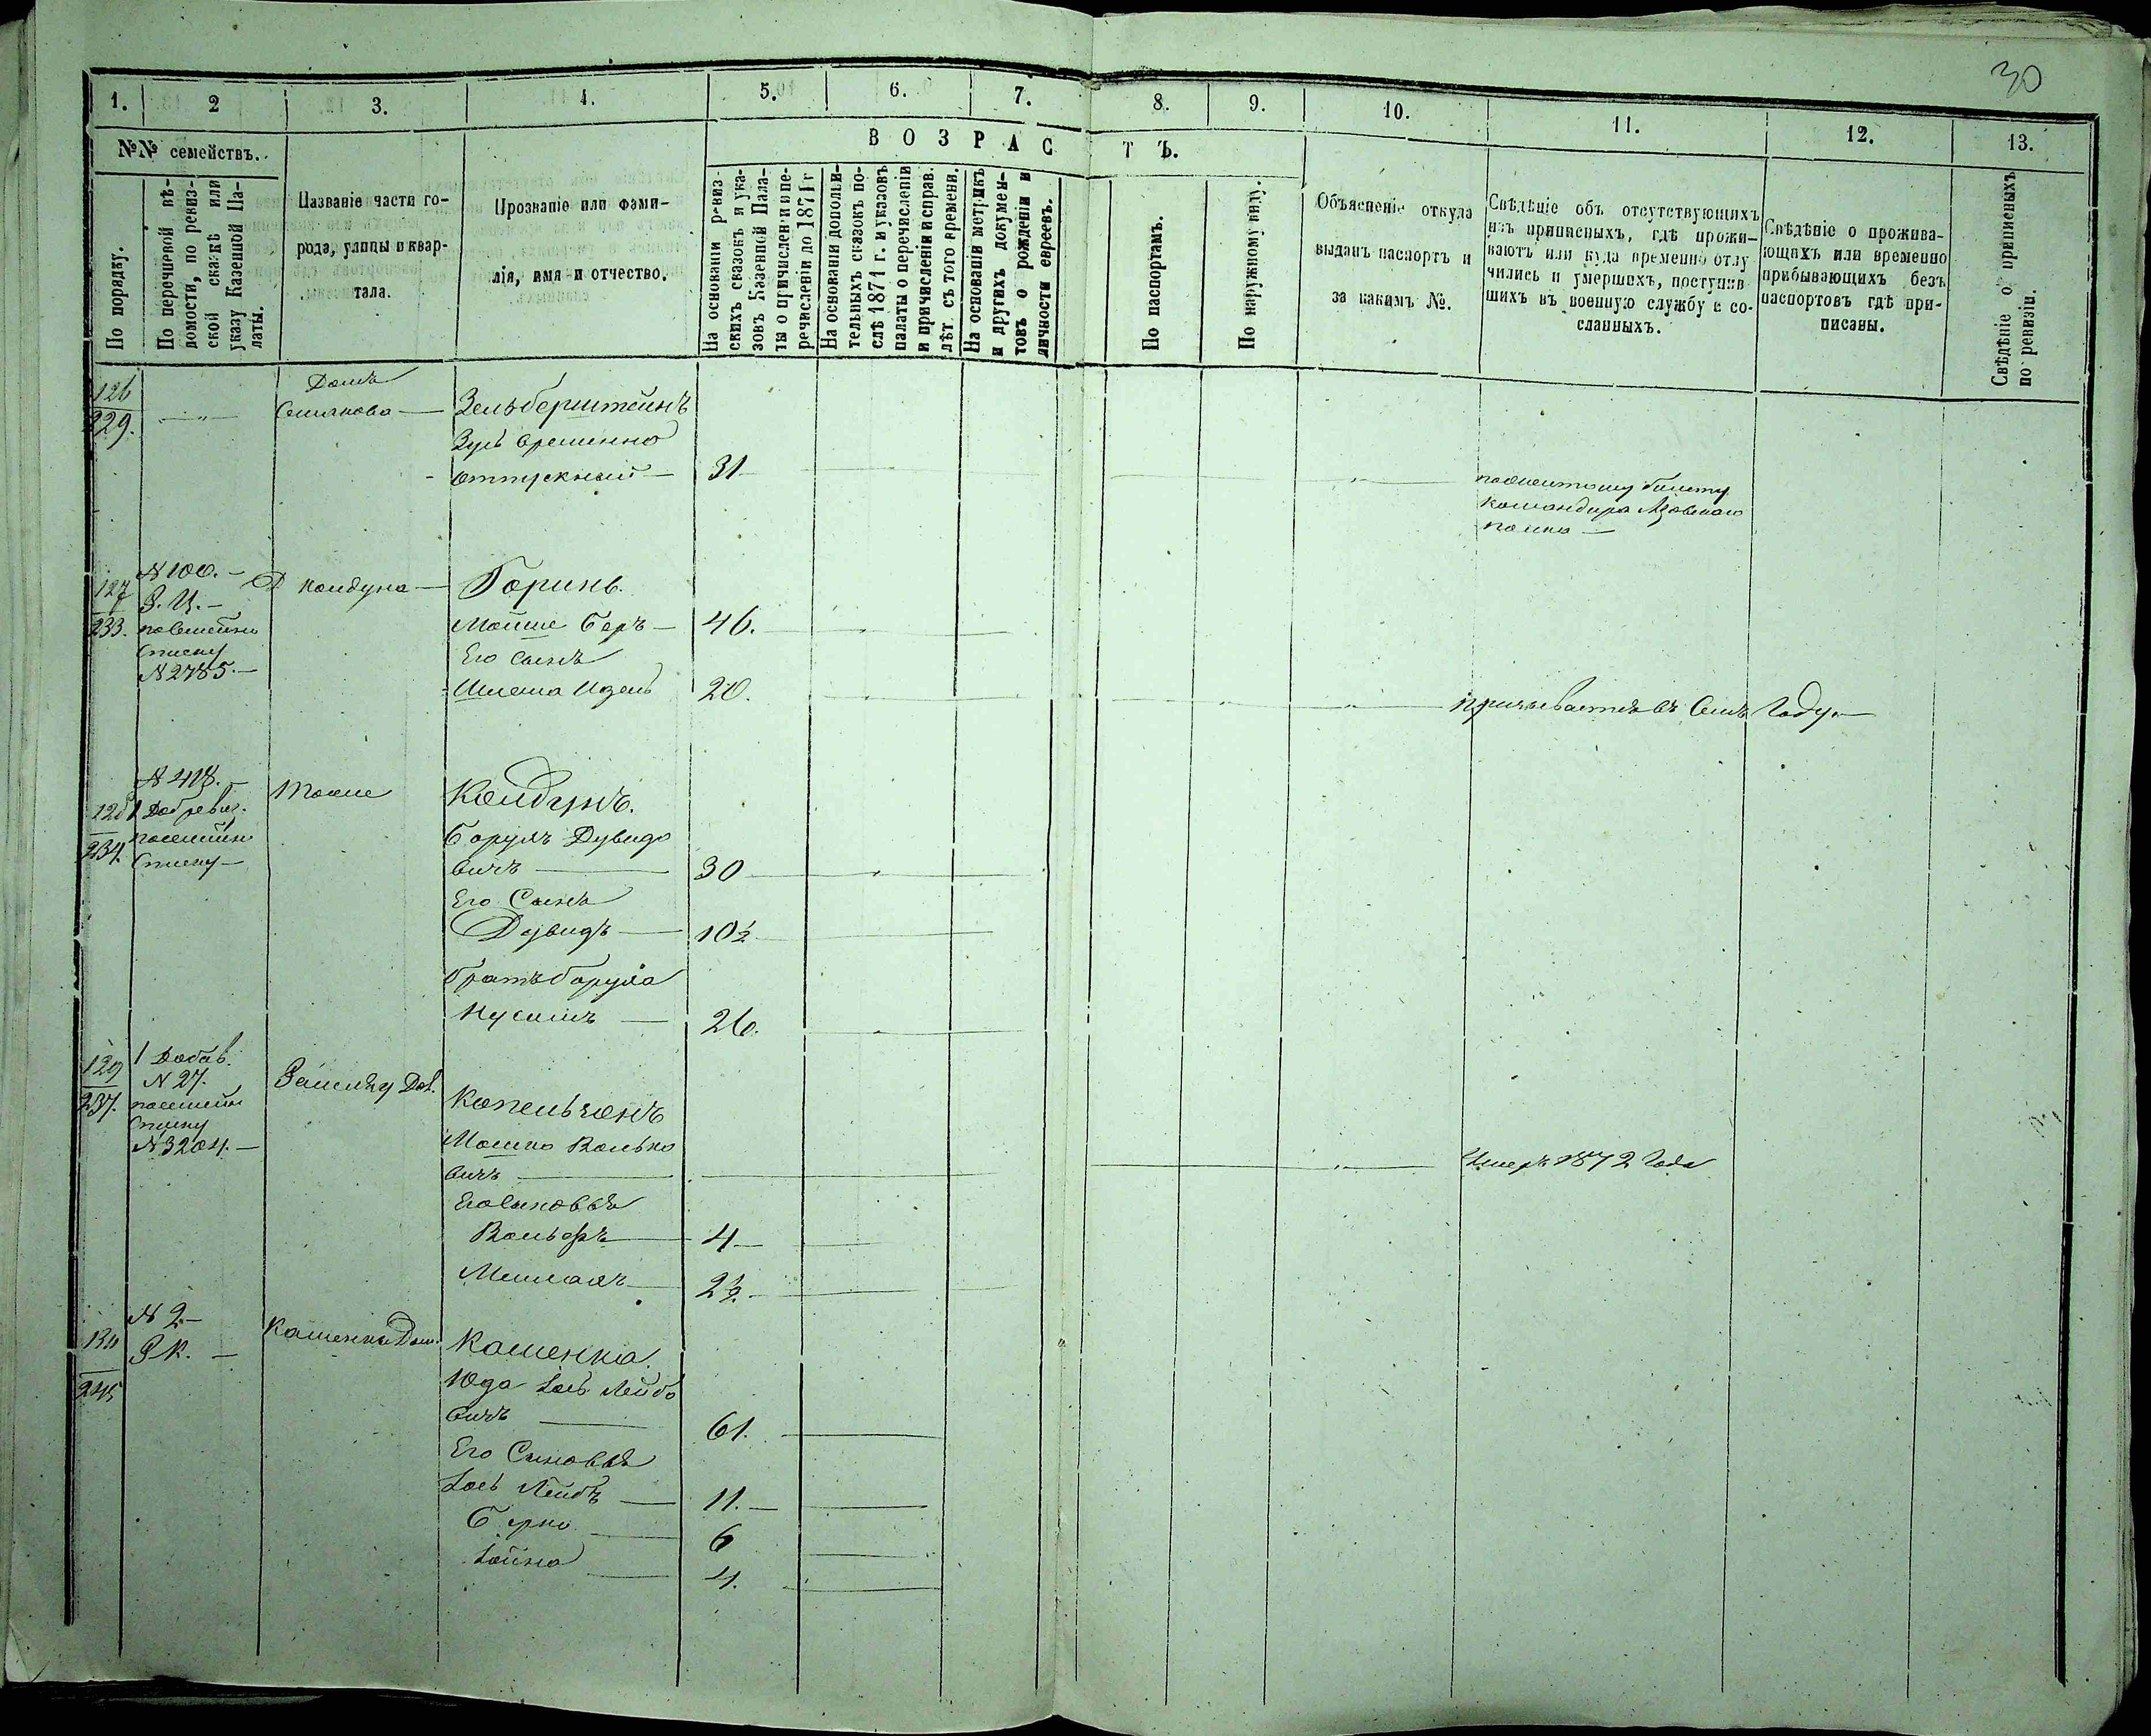 30
1. 2 3. 4. 5. 6. 7. 8. 9. 10. 11. 12. 13.
№№ семействъ.
В О З Р А С Т Ъ.
По порядку.
По перечневой вѣ-
домости, по ревиз-
ской сказкѣ или
указу Казенной Па-
латы.
Названіе части го-
рода, улицы и квар-
тала.
Прозваніе или фами-
лія, имя и отчество.
На основаніи ревиз-
скихъ сказокъ и ука-
зовъ Казенной Пала-
ты о причислени и пе-
речисленіи до 1871 г
На основаніи дополни-
тельныхъ сказокъ по-
слѣ 1871 г. и указовъ
палаты о перечисленіи
и причисленіи и справ.
лѣт. съ того времени.
На основаніи метрикъ
и другихъ докумен-
товъ о рожденіи и
личности евреевъ.
По паспортамъ.
По наружному виду.
Объясненіе откуда
выданъ паспортъ и
за какимъ №.
Свѣдѣніе объ отсутствующихъ
изъ приписныхъ, гдѣ прожи-
ваютъ или куда временно отлу
чились и умершихъ, поступив
шихъ въ военную службу и со-
сланныхъ.
Свѣдѣніе о прожива-
ющихъ или временно
прибывающихъ безъ
паспортовъ гдѣ при-
писаны.
Свѣдѣніе о приписныхъ
по ревизіи.
126
229.
Домъ
Зельберштейнъ
Зусь временно
отпускный — 31
Командира Азовскаго
полка —
127
233.
N 100. —
посемейн
списку
N 2785. —
Д Колдуна —
Горинъ.
Мойше Беръ — 46.
Его сынъ
Шлема Изель 20.
призывается въ семъ году. —
128
234.
N 418. —
посемейн
списку —
Тоже
Колдунъ.
Борухъ Дувидо
вичъ — 30
Его Сынъ
Дувидъ — 10½
братъ Боруха
Нусимъ — 26.
129
237.
1 Добав.
N 27.
посемейн
списку
N 3204. —
Копельчонъ
Мошко Волько
вичъ —
Умеръ 1872 года
Его сыновья
Вольфъ — 4 —
Михаль — 2½.
130
245
N 2. —
Р К. —
Кашенки Дом.
Кашенка.
Юда Іось Лейбо
вичъ — 61.
Его Сыновья
Іось Лейбъ — 11. —
Берко — 6
Іойна — 4.